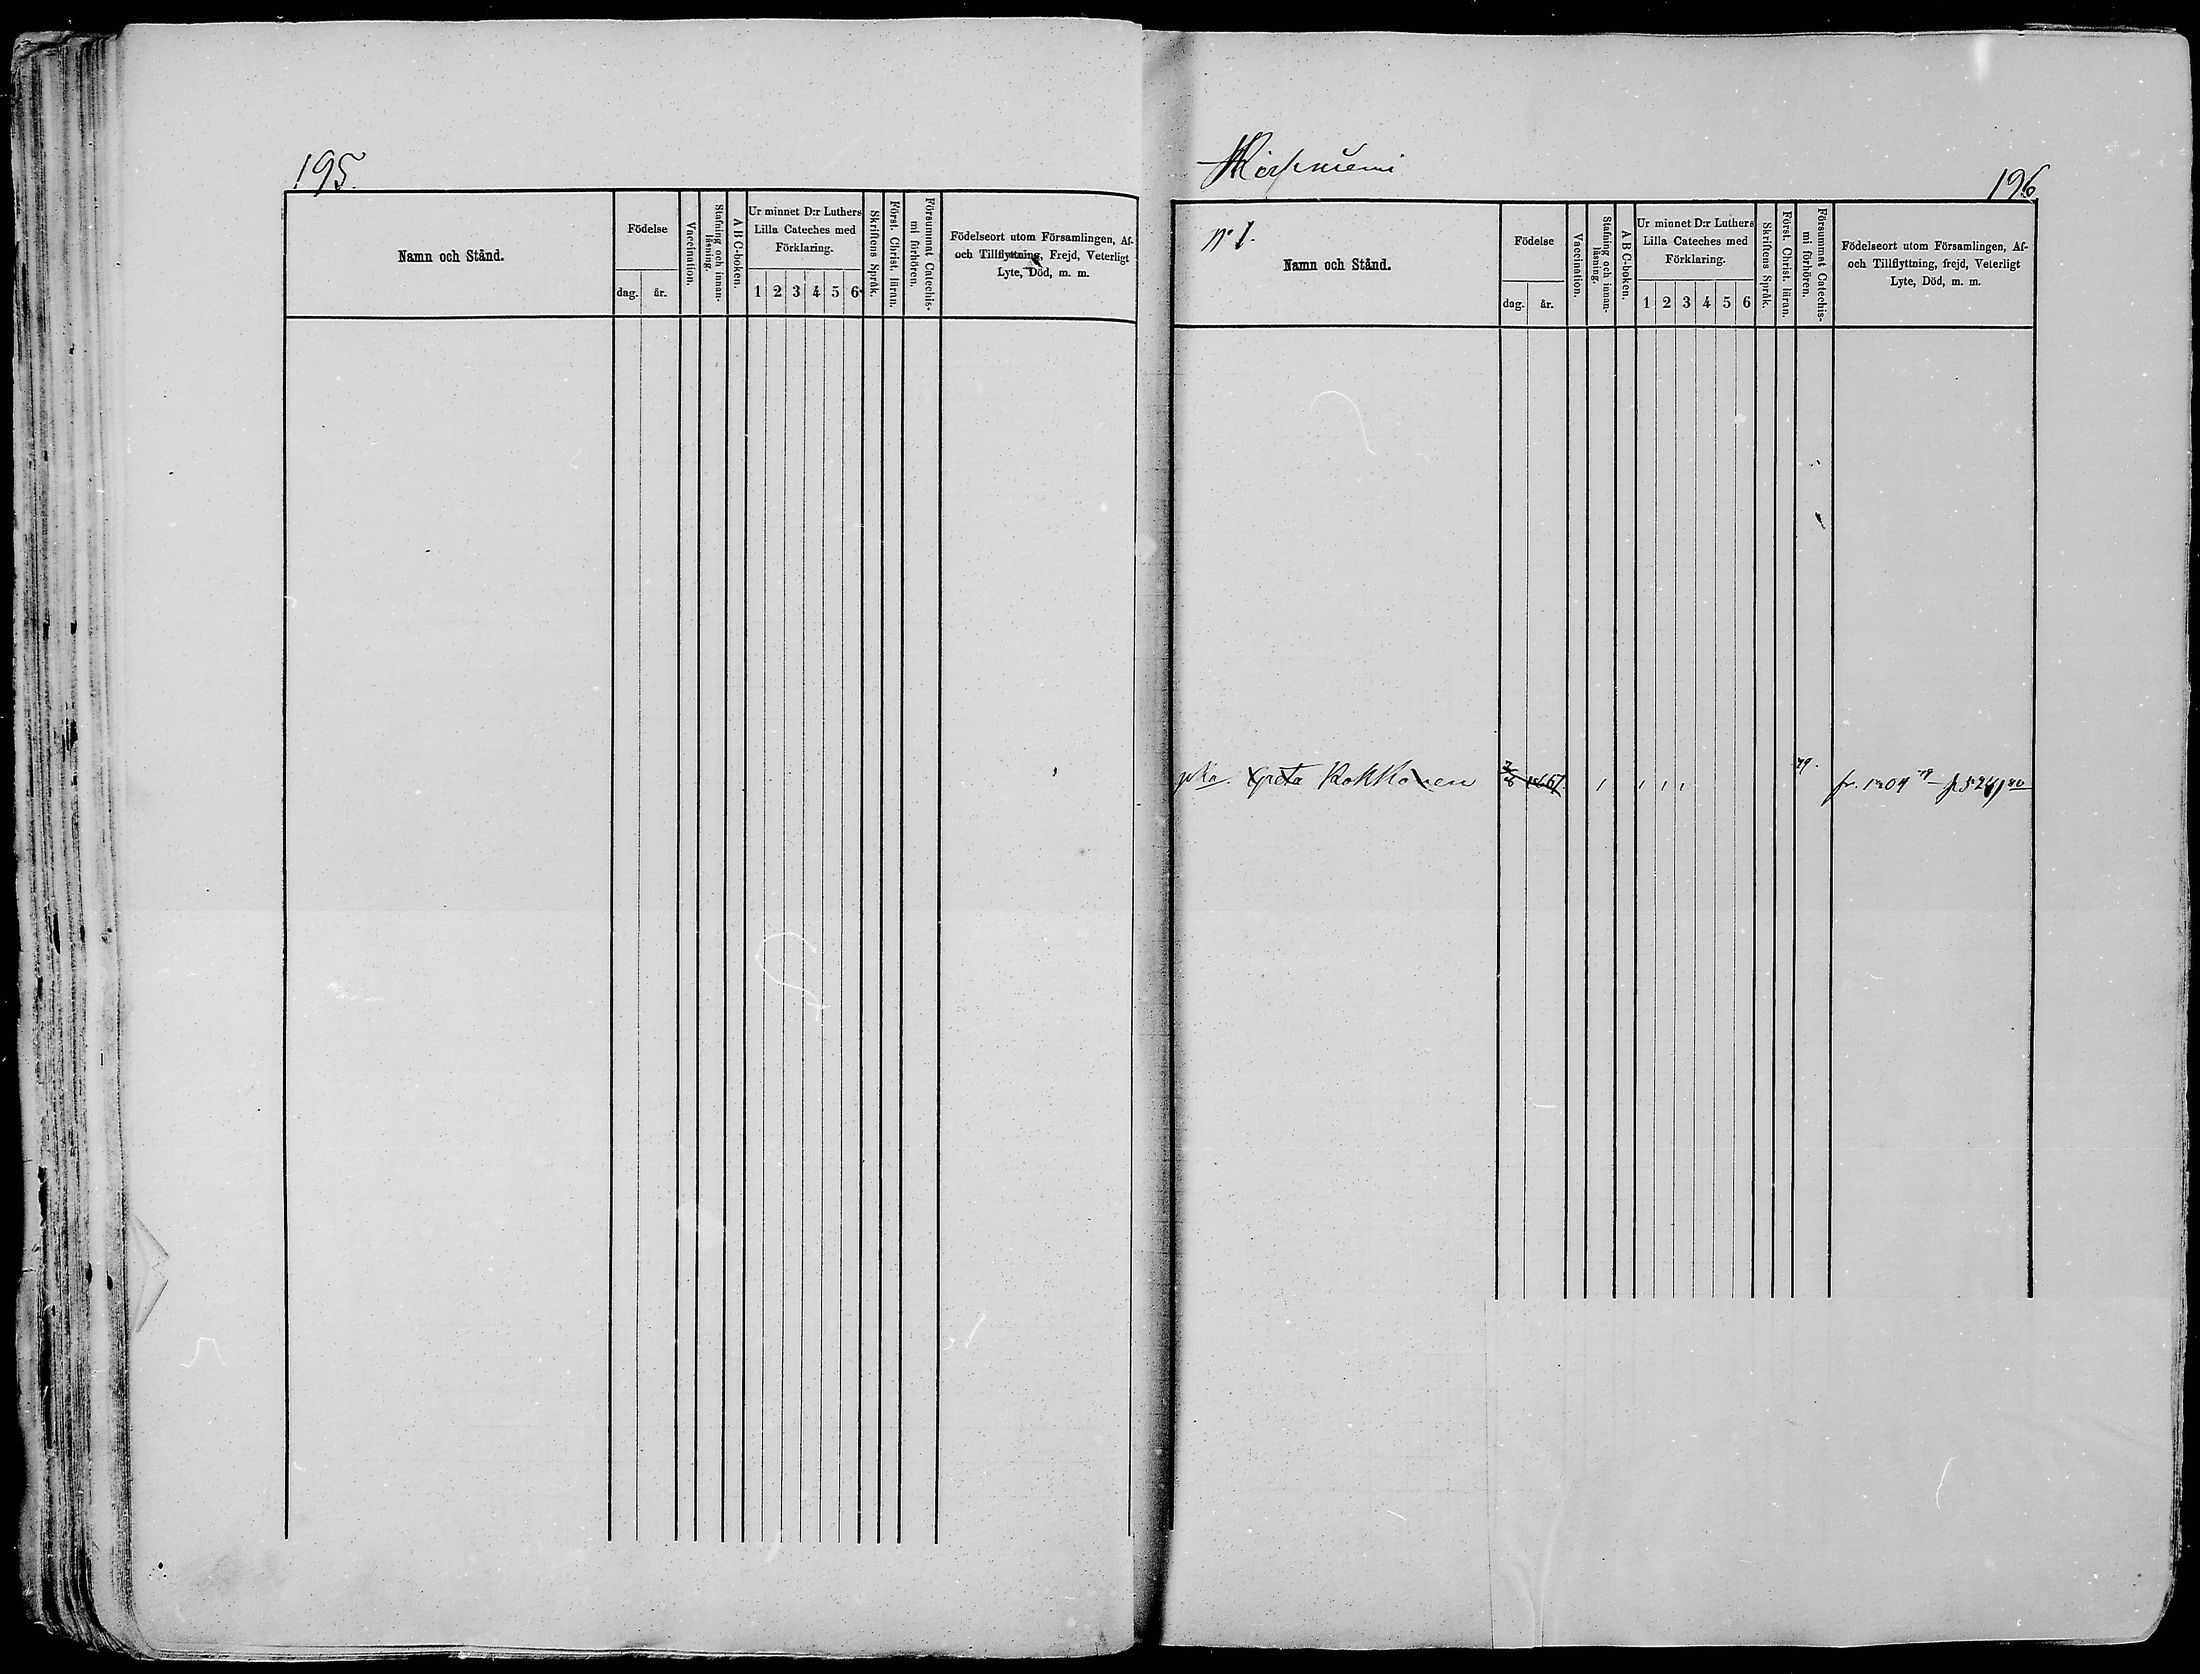 195.
Namn och Stånd.
Födelse
dag. år.
Vaccination.
Stafning och innan-
läsning.
A B C-boken.
Ur minnet D:r Luthers
Lilla Cateches med
Förklaring.
1 2 3 4 5 6
Skriftens Språk.
Först. Christ. läran.
Försummat Catechis-
mi förhören.
Födelseort utom Församlingen, Af-
och Tillflyttning, Frejd, Veterligt
Lyte, Död, m. m.
196
No 1.
Namn och Stånd.
Födelse
dag. år.
Vaccination.
Stafning och innan-
läsning.
A B C-boken.
Ur minnet D:r Luthers
Lilla Cateches med
Förklaring.
1 2 3 4 5 6
Skriftens Språk.
Först. Christ. läran.
Försummat Catechis-
mi förhören.
Födelseort utom Församlingen, Af-
och Tillflyttning, frejd, Veterligt
Lyte, Död, m. m.
pka. Greta Kokkonen 79. fr. 1204 79